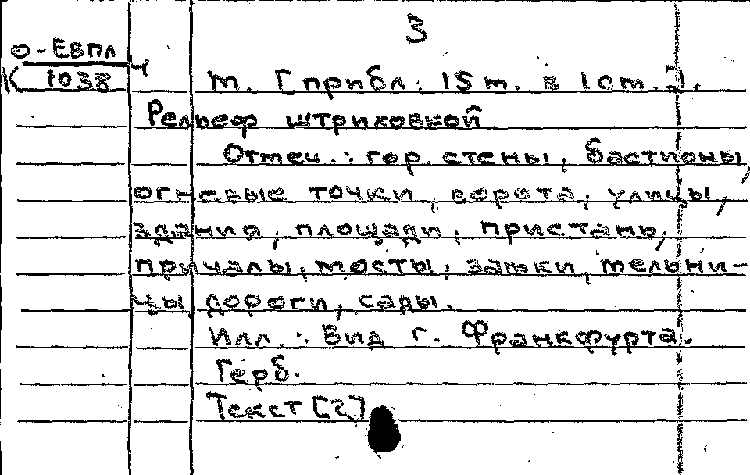 3
О-ЕВПЛ
К 1038 4
М. [прибл. 15 m. в 1 cm.].
Рельеф штриховкой
Отмеч.: гор. стены, бастионы,
огневые точки, ворота, улицы,
здания, площади, пристань,
причалы, мосты, замки, мельни-
цы, дороги, сады.
Илл.: Вид г. Франкфурта.
Герб.
Текст [2]